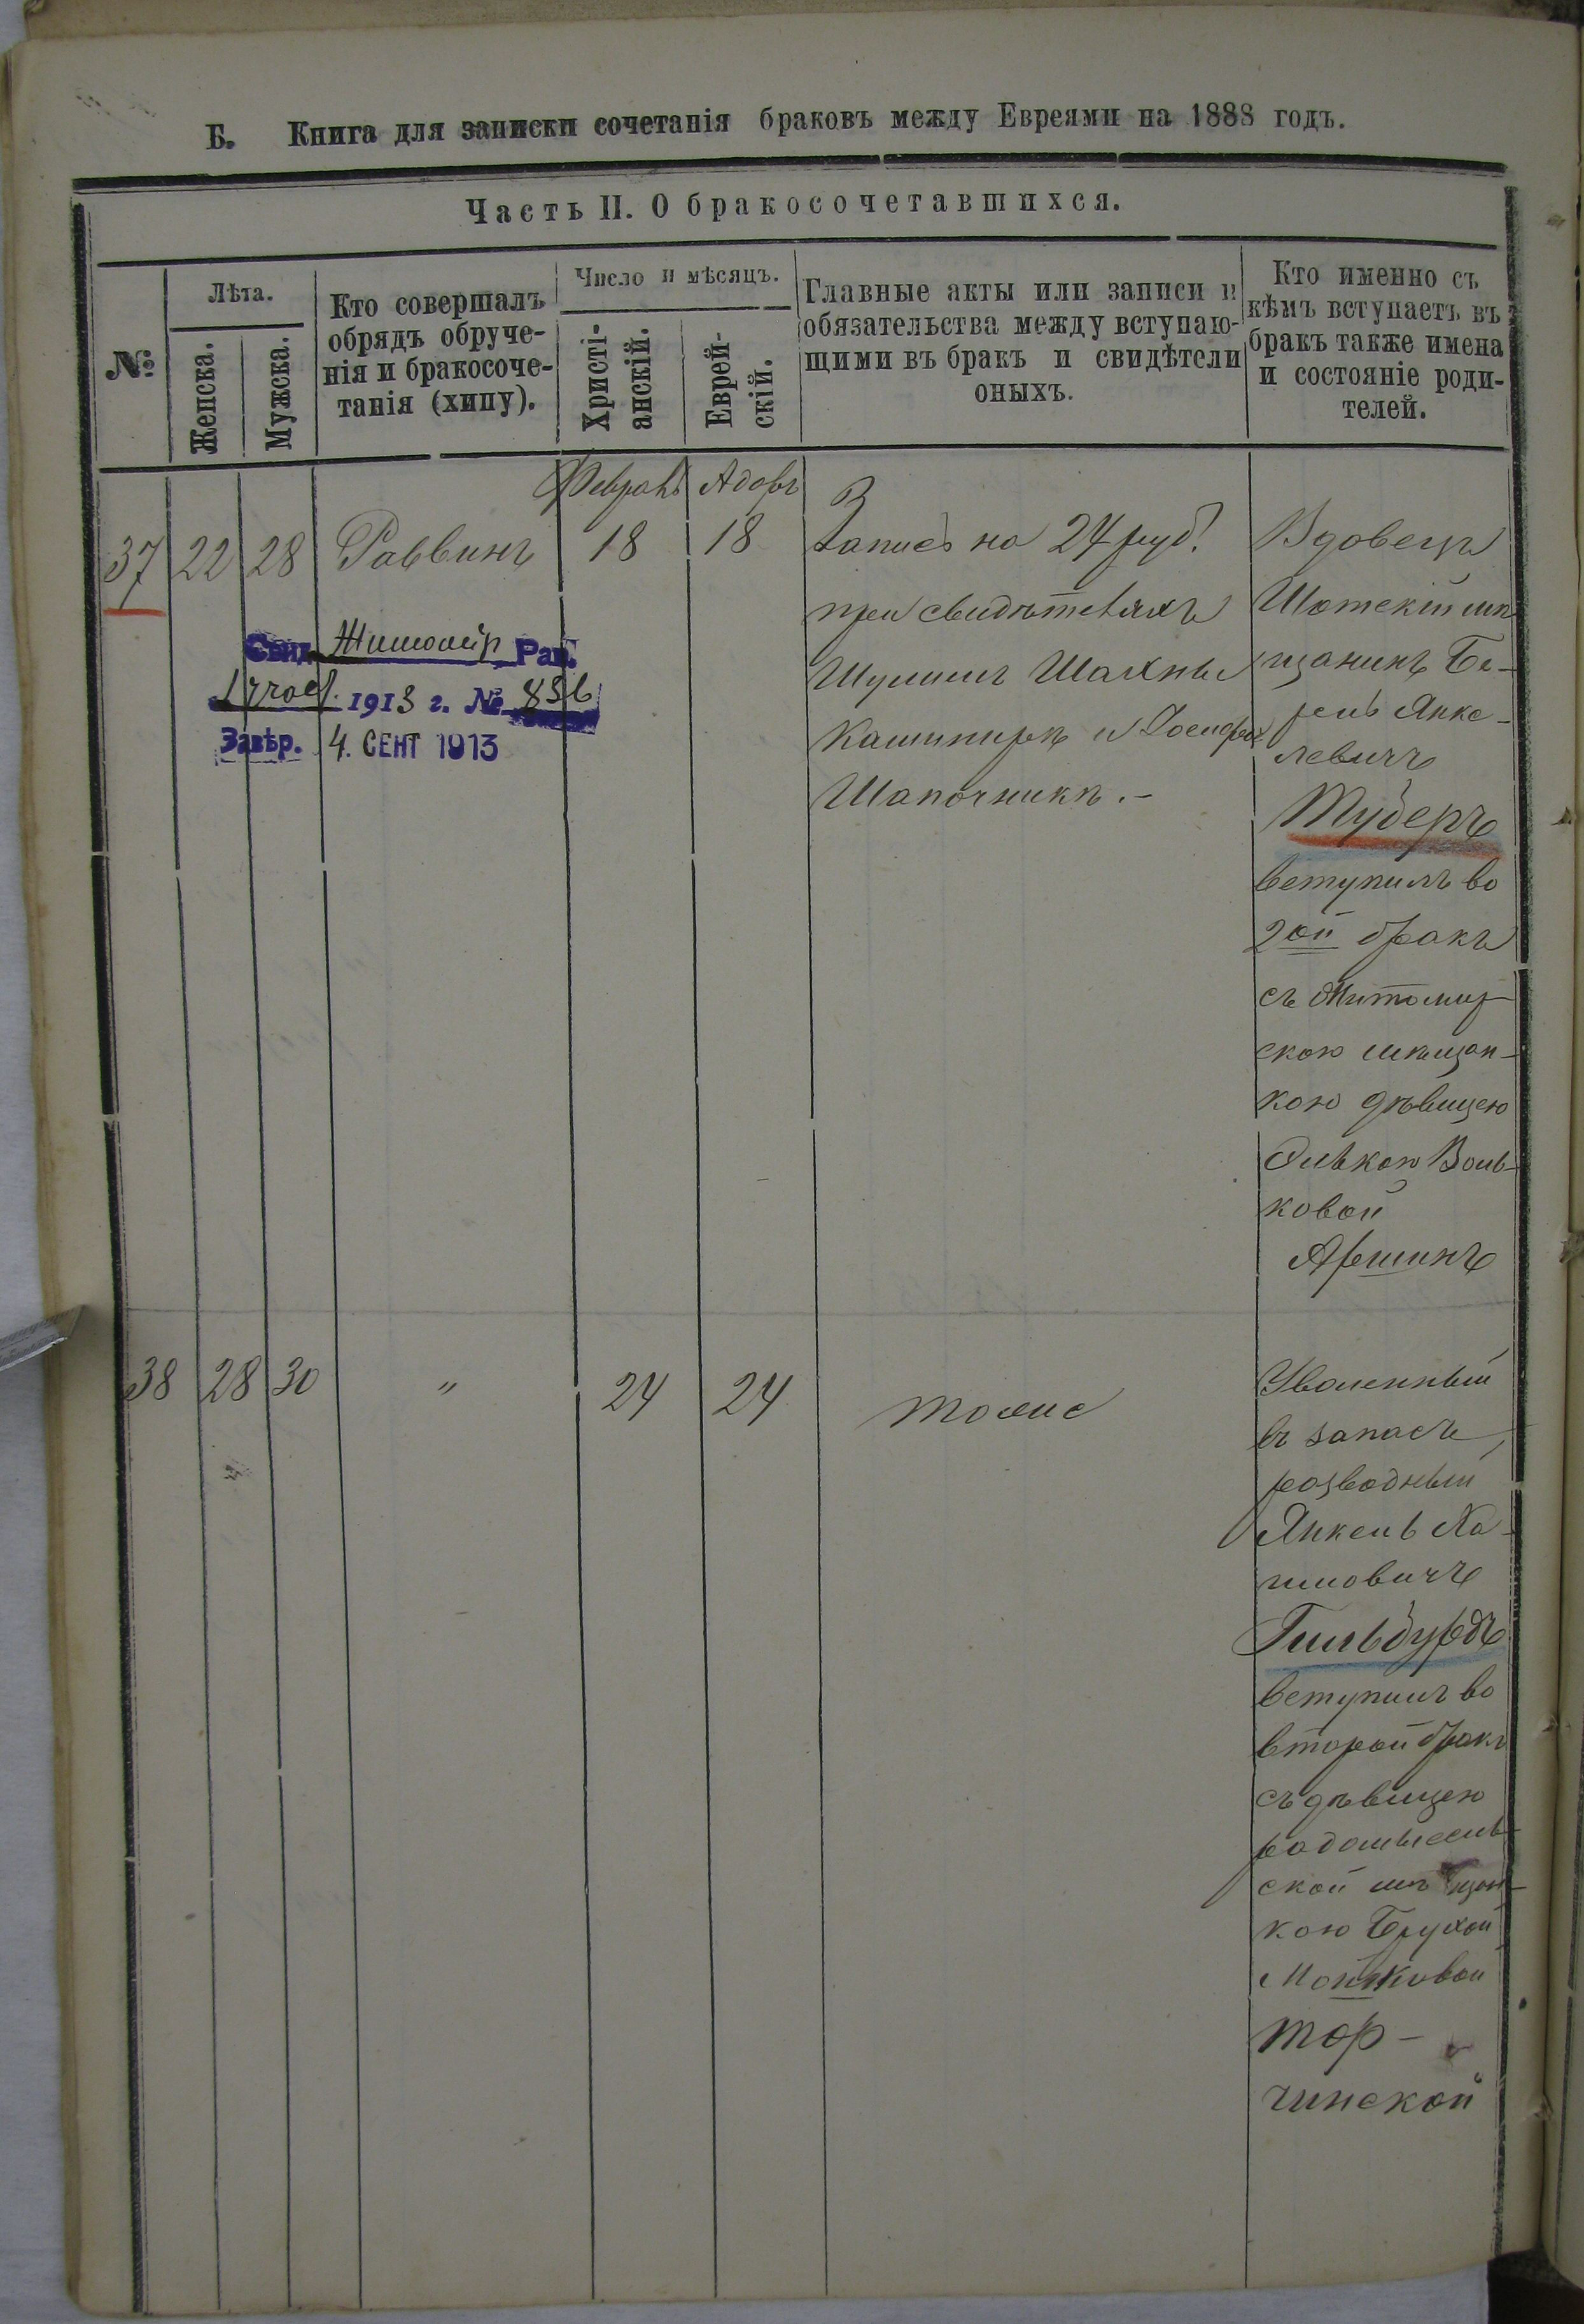 Б. Книга для записки сочетанія браковъ между Евреями на 1888 годъ.
Часть II. О бракосочетавшихся.
№
Лѣта.
Женска.
Мужска.
Кто совершалъ
обрядъ обруче-
нія и бракосоче-
танія (хипу).
Число и мѣсяцъ.
Христі-
анскій.
Еврей-
скій.
Главные акты или записи и
обязательства между вступаю-
щими въ бракъ и свидѣтели
оныхъ.
Кто именно съ
кѣмъ вступаетъ въ
бракъ также имена
и состояніе роди-
телей.
Февраль Адоръ
37 22 28 Раввинъ 18 18
Запись на 24 руб.
при свидѣтеляхъ
Шулимъ Шахны
Кашпирѣ и Іосифѣ
Шапочникѣ.-
Свид. Житомір. Рав.
1913 г. № 836
Завѣр. 4. СЕНТ 1913
Вдовецъ
мѣ-
щанинъ Бе-
рель Янке-
левичъ
Туберъ
вступилъ во
2ой бракъ
съ Житомир-
скою мѣщан-
кою дѣвицею
Элькою Воль-
ковой
Аршинъ
38 28 30 " 24 24 тоже
Уволенный
въ запасъ,
разводный
Янкель Ха-
имовичъ
Гильбурдъ
вступилъ во
второй бракъ
съ дѣвицею
радомысль-
ской мѣщан-
кою Брухой
Мошковой
Тор-
чинской